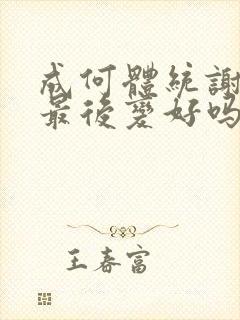 成何體統謝
最後變好嗎
王春富